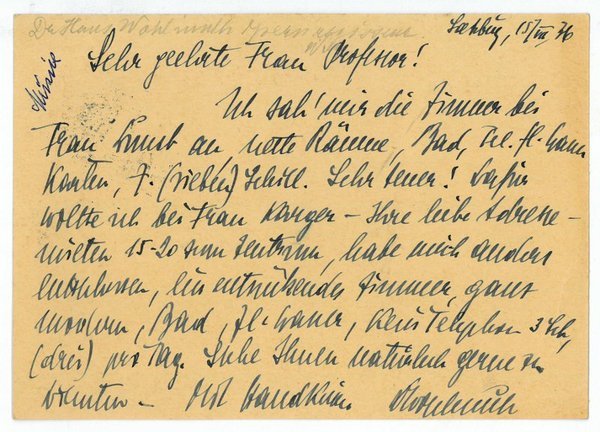 Dr Hans Wohlmuth Opernregisseur
Salzburg, 15/VII 36
Sehr geehrte Frau Professor!
Ich sah mir die Zimmer bei
Frau an, nette Räume, Bad, fl.
Kosten, 7. (sieben) Schill. Sehr teuer! Dafür
wollte ich bei Frau Karger – Ihre liebe Adresse –
mieten 15-20 zum Zentrum, habe mich anders
entschlossen, ein entzückendes Zimmer, ganz
modern, Bad, Fl. Wasser, kein Telephon 3 Sch,
(drei) pro Tag. Stehe Ihnen natürlich gerne zu
Diensten – Mit Handkuss Wohlmuth